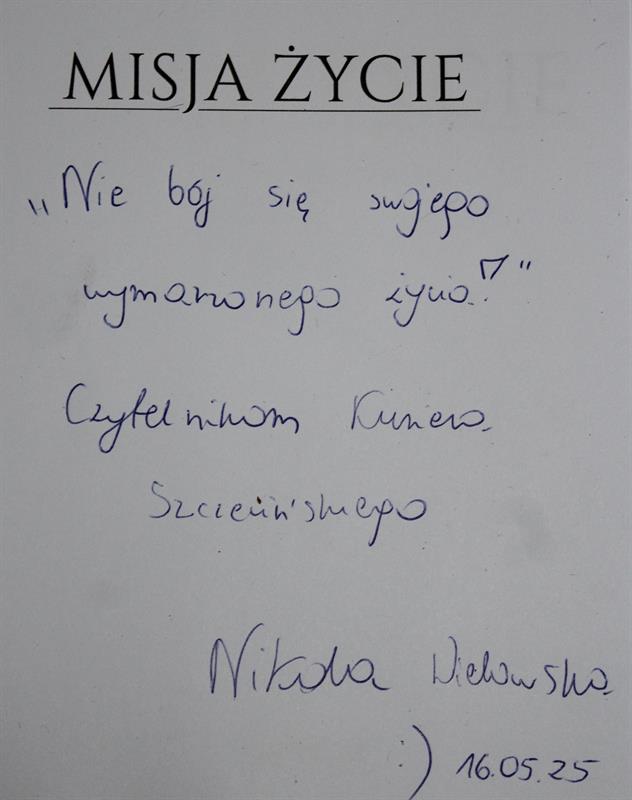 MISJA ŻYCIE
„Nie bój się swojego
wymarzonego życia!"
Czytelnikom Kuriera
Szczecińskiego
Nikola
:) 16.05.25